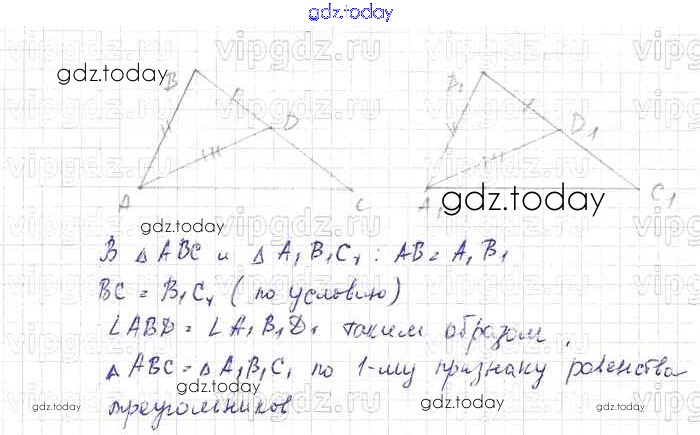 gdz.today
vipgdz.ru vipgdz.ru vipgdz.ru
gdz.today
B B₁
D D₁
A C A₁ C₁
gdz.today
gdz.today
В △ ABC и △ A₁B₁C₁ : AB = A₁B₁
BC = B₁C₁ (по условию)
∠ABD = ∠A₁B₁D₁ таким образом,
△ ABC = △ A₁B₁C₁ по 1-му признаку равенства
gdz.today
треугольников
gdz.today gdz.today gdz.today